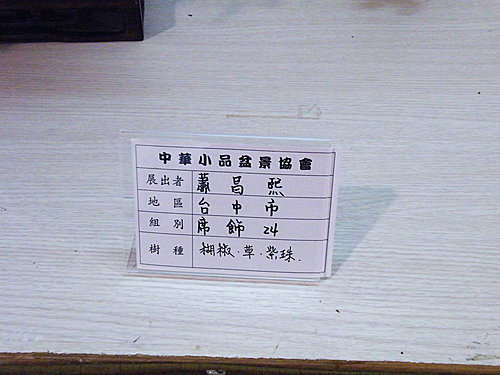 中華小品盆景協會
展出者 蕭昌熙
地區 台中市
組別 席飾24
樹種 楜椒.草.紫珠.